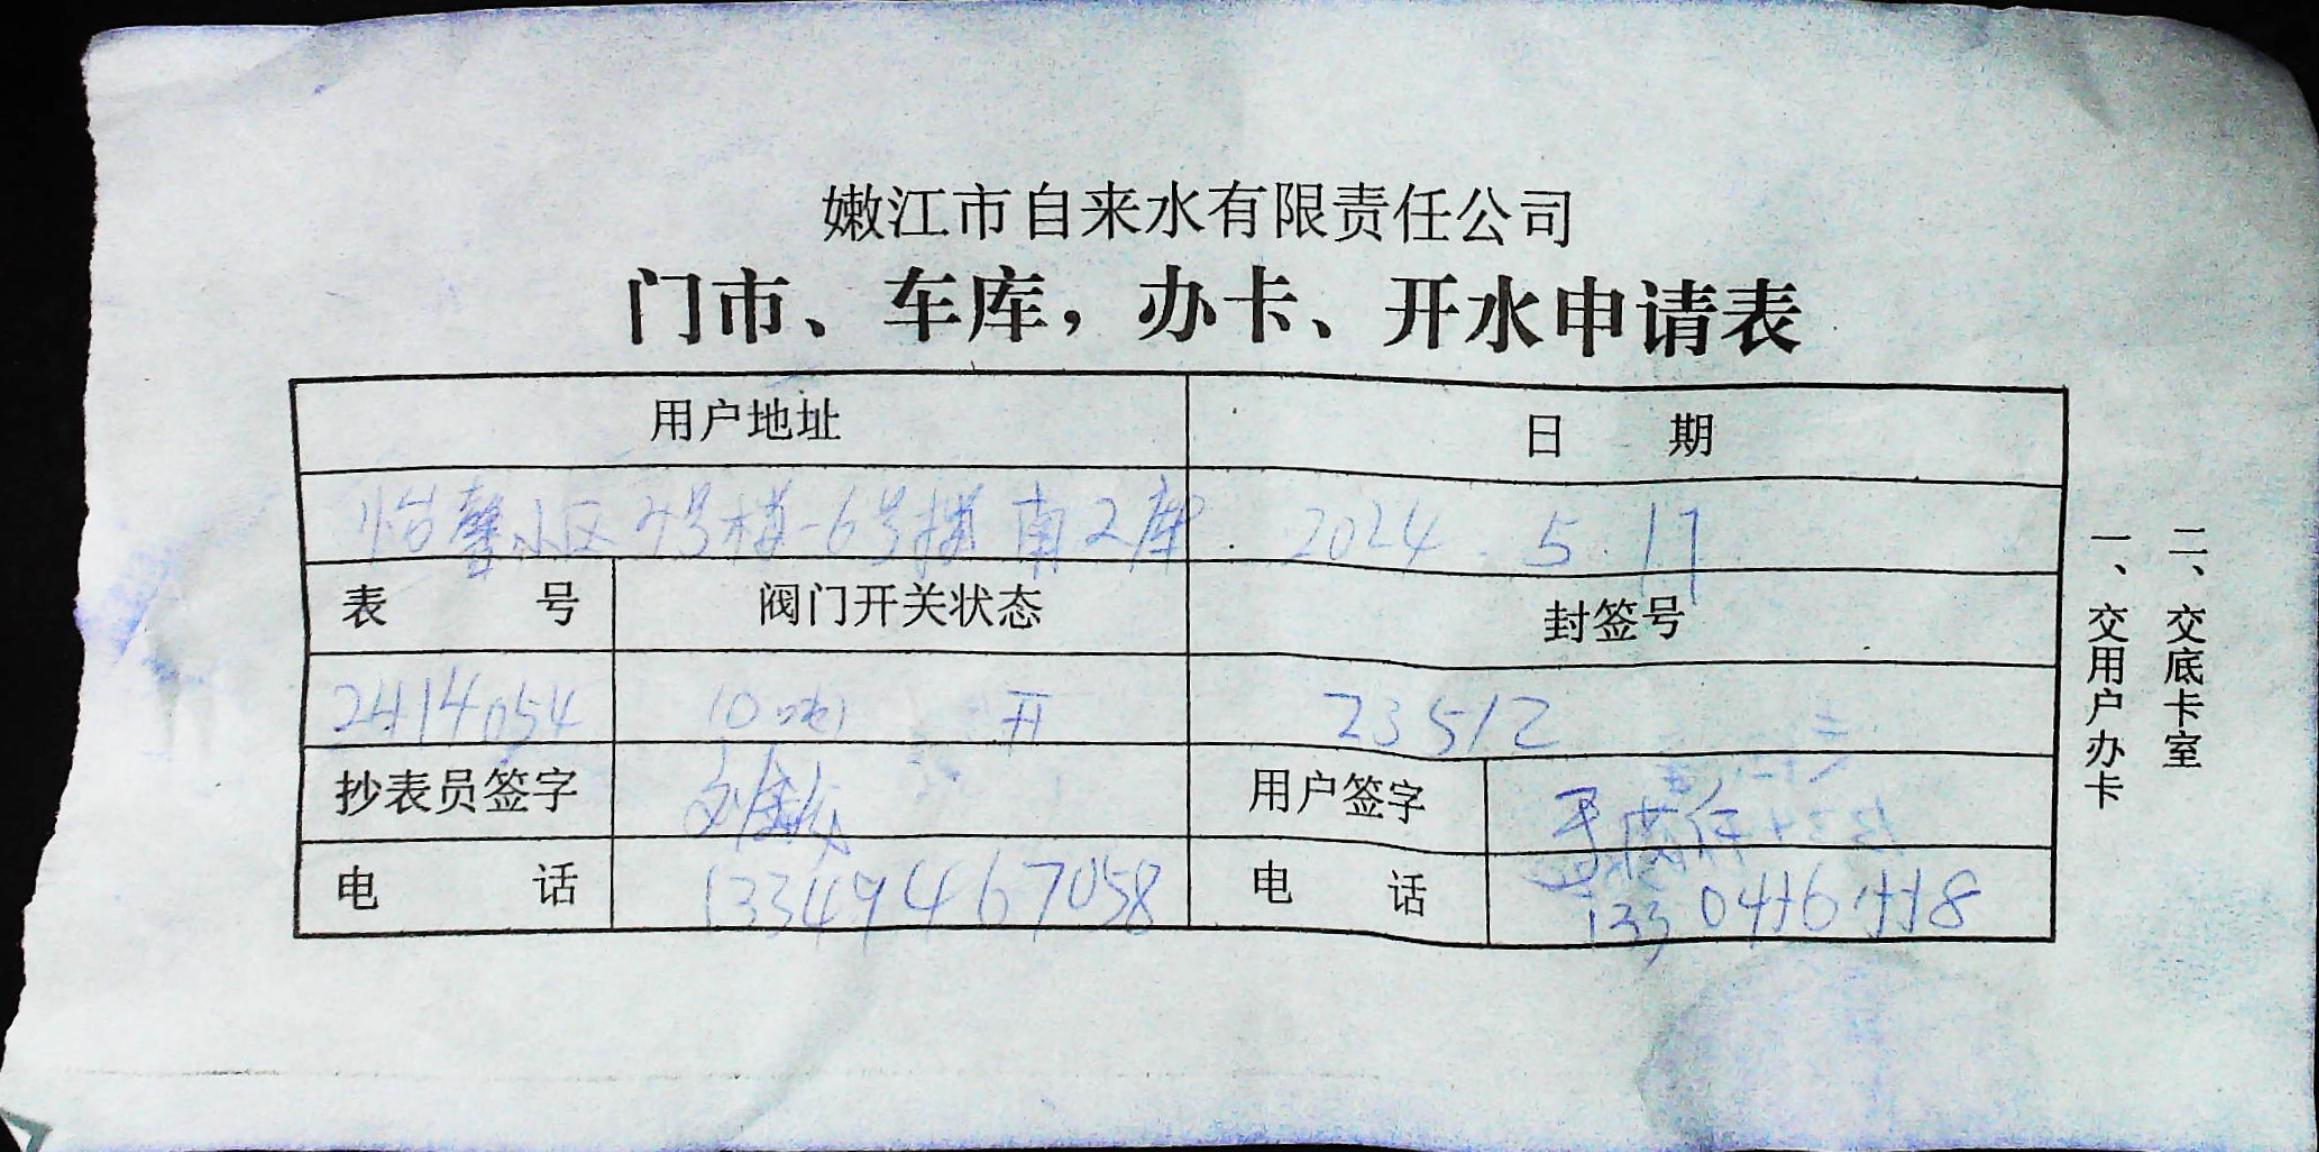 嫩江市自来水有限责任公司
门市、车库，办卡、开水申请表
用户地址 日 期
怡馨小区 号楼-6号楼 南2库 2024.5.17
表 号 阀门开关状态 封签号
2414054 10吨 开 23512
抄表员签字 用户签字
电 话 13349467058 电 话
一、交用户办卡
二、交底卡室